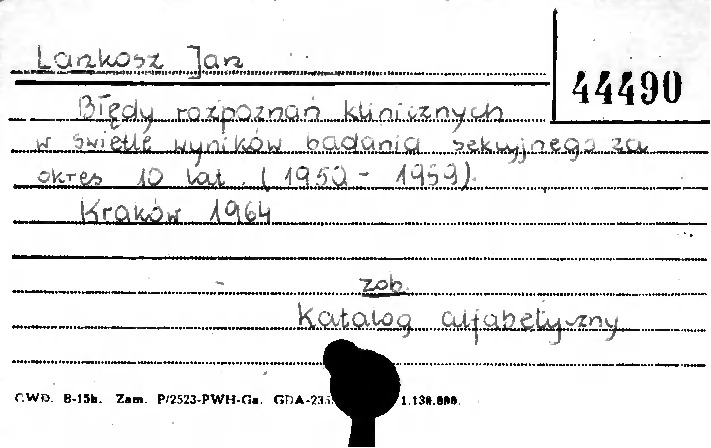 Lankosz Jan
44490
Błędy rozpoznań klinicznych
w świetle wyników badania sekcyjnego za
okres 10 lat. (1950 - 1959).
Kraków 1964
zob.
Katalog alfabetyczny
CWD. B-15b. Zam. P/2523-PWH-Ga. GDA-235 1.130.000.